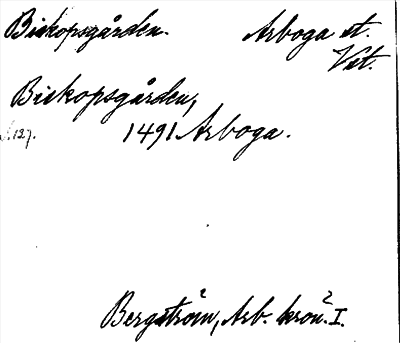 Biskopsgården. Arboga st.
Vst.
Biskopsgården,
s. 127. 1491 Arboga.
Bergström, Arb. krön. I.